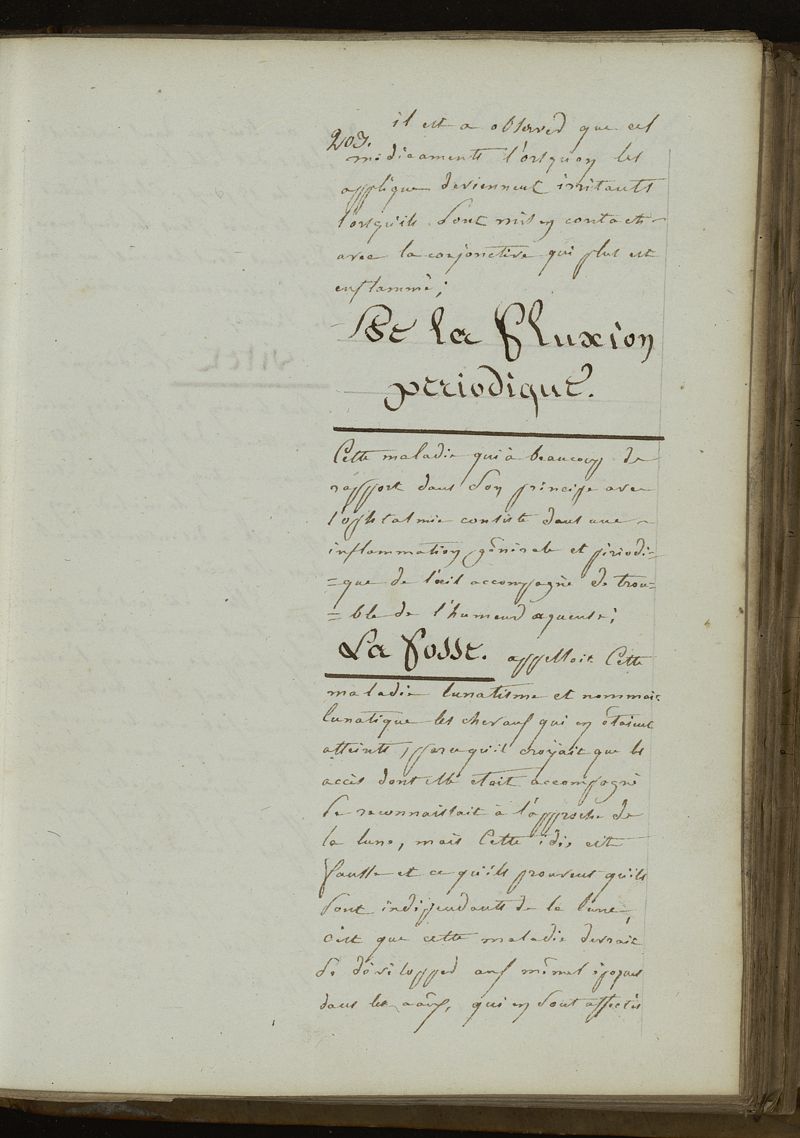 203.
il est a observer que ces
médicaments l'orsquon les
applique deviennent irritants
l'orsquils sont mis en contacts
avec la conjonctive qui plus est
enflammè;
De la fluxion
periodique.
Cette maladie qui à beaucoup de
rapport dans son principe avec
l'ophtalmie consiste dans une
inflammation génerale et périodi=
=que de l'œil accompagnè de trou=
=ble de l'humeur aqueuse;
La fosse. appelloit Cette
maladie lunatisme et nommait
lunatique les chevaux qui en étaient
atteints, parcequ'il croyait que les
accès dont elle etait accompagnè
se reconnaissait à l'approche de
la lune, mais Cette idée est
fausse et ce qu'ils prouvent qu'ils
sont indépendants de la lune,
c'est que cette maladie devrait
se développer aux mêmes époques
dans les qui en sont affectés